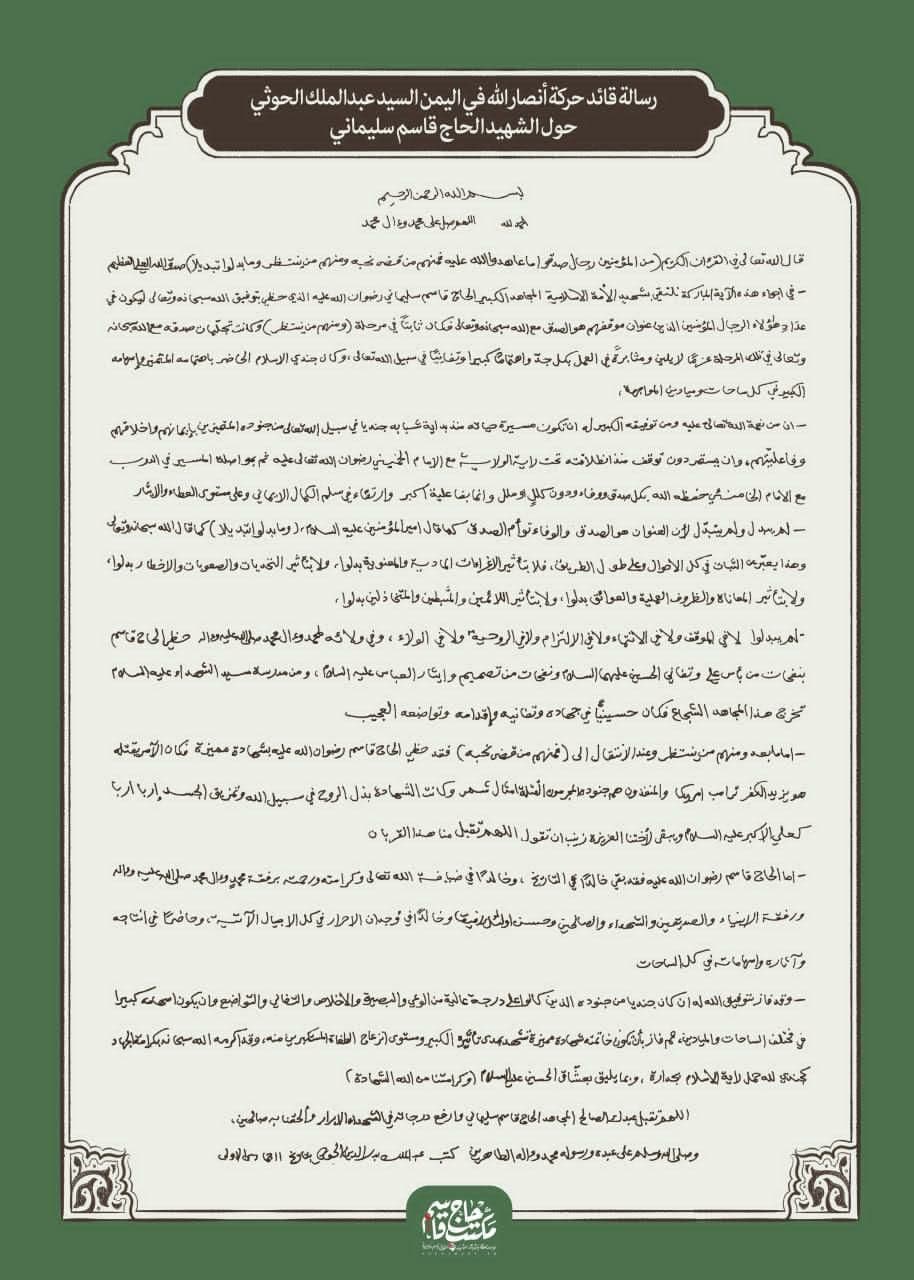 رسالة قائد حركة أنصار الله في اليمن السيد عبدالملك الحوثي
حول الشهيد الحاج قاسم سليماني
بسم الله الرحمن الرحيم
الحمد لله اللهم صل على محمد وءال محمد
قال الله تعالى في القرءان الكريم (من المؤمنين رجال صدقوا ما عاهدوا الله عليه فمنهم من قضى نحبه ومنهم من ينتظر وما بدلوا تبديلا) صدق الله العلي العظيم
– في اجواء هذه الآية المباركة نلتقي بشهيد الأمة الاسلامية المجاهد الكبير الحاج قاسم سليماني رضوان الله عليه الذي حظي بتوفيق الله سبحانه وتعالى ليكون في
عداد هؤلاء الرجال المؤمنين الذين عنوان موقفهم هو الصدق مع الله سبحانه وتعالى فكان ثابتاً في مرحلة (ومنهم من ينتظر) وكانت تجليات صدقه مع الله سبحانه
وتعالى في تلك المرحلة عزمًا لا يلين ومثابرةً في العمل بكل جدّ واهتمامًا كبيرا وتفانيًا في سبيل الله تعالى، وكان جندي الاسلام الحاضر باهتمامه المتميز وإسهامه
الكبير في كل ساحات وميادين المواجهة.
– ان من نعمة الله تعالى عليه ومن توفيقه الكبير له ان تكون مسيرة حياته منذ بداية شبابه جنديا في سبيل الله تعالى من جنوده المتميزين بإيمانهم واخلاقهم
وفاعليتهم، وان يستمر دون توقف منذ انطلاقته تحت راية الولاية مع الإمام الخميني رضوان الله تعالى عليه ثم بمواصلة المسير في الدرب
مع الإمام الخامنئي حفظه الله بكل صدق ووفاء ودون كللٍ او ملل وانما بفاعلية اكبر وارتقاء في سلم الكمال الايماني وعلى مستوى العطاء والايثار
– لم يبدل ولم يتبدّل لأن العنوان هو الصدق والوفاء توأم الصدق كما قال امير المؤمنين عليه السلام، (وما بدلوا تبديلا) كما قال الله سبحانه وتعالى
وهذا يعبّر عن الثبات في كل الاحوال وعلى طول الطريق، فلا بتأثير الإغراءات المادية والمعنوية بدلوا، ولا بتأثير التحديات والصعوبات والاخطار بدلوا،
ولا بتأثير المعاناة والظروف العملية والعوائق بدلوا، ولا بتأثير اللائمين والمثبطين والمتخاذلين بدلوا.
– لم يبدلوا لا في الموقف ولا في الانتماء ولا في الإلتزام ولا في الروحية ولا في الولاء، وفي ولائه لمحمد وءال محمد صلى الله عليه وءاله حظي الحاج قاسم
بنفحات من بأس علي وتفاني الحسين عليهما السلام ونفحات من تصميم وإيثار العباس عليه السلام، ومن مدرسة سيد الشهداء عليه السلام
تخرج هذا المجاهد الشجاع فكان حسينيًّا في جهاده وتفانيه وإقدامه وتواضعه العجيب
– اما ما بعد ومنهم من ينتظر وعند الإنتقال الى (فمنهم من قضى نحبه) فقد حظي الحاج قاسم رضوان الله عليه بشهادة مميزة فكان الآمر بقتله
هو يزيد الكفر ترامب امريكا والمنفذون هم جنوده المجرمون القتلة امثال شمر وكانت الشهادة بذل الروح في سبيل الله وتمزيق الجسد إربا اربا
كعلي الاكبر عليه السلام ويبقى لأختنا العزيزة زينب ان تقول اللهم تقبل منا هذا القربان
– اما الحاج قاسم رضوان الله عليه فقد بقي خالدًا في التاريخ، وخالدًا في ضيافة الله تعالى وكرامته ورحمته برفقة محمد وءال محمد صلى الله عليه وءاله
ورفقة الانبياء والصديقين والشهداء والصالحين وحسن اولئك رفيقا وخالدًا في وجدان الاحرار في كل الاجيال الآتية، وحاضرًا في انتاجه
وآثاره وإسهاماته في كل الساحات
– وقد فاز بتوفيق الله له ان كان جنديا من جنوده الذين كانوا على درجة عالية من الوعي والبصيرة والاخلاص والتفاني والتواضع وان يكون اسهامه كبيرا
في مختلف الساحات والميادين، ثم فاز بأن تكون خاتمته شهادة مميزة تشهد بمدى تأثيره الكبير ومستوى انزعاج الطغاة المستكبرين منه، وقد اكرمه الله سبحانه بكرامة الجهاد
كجندي لله حمل راية الاسلام بجدارة، وبما يليق بعشّاق الحسين عليه السلام (وكرامتنا من الله الشهادة)
اللهم تقبل عبدك الصالح المجاهد الحاج قاسم سليماني وارفع درجاته في الشهداء الابرار وألحقنا به صالحين.
وصلى الله وسلم على عبده ورسوله محمد وءاله الطاهرين كتب عبدالملك بدر الدين الحوثي بتاريخ ١١ جمادى الاولى
مكتب حاج قاسم